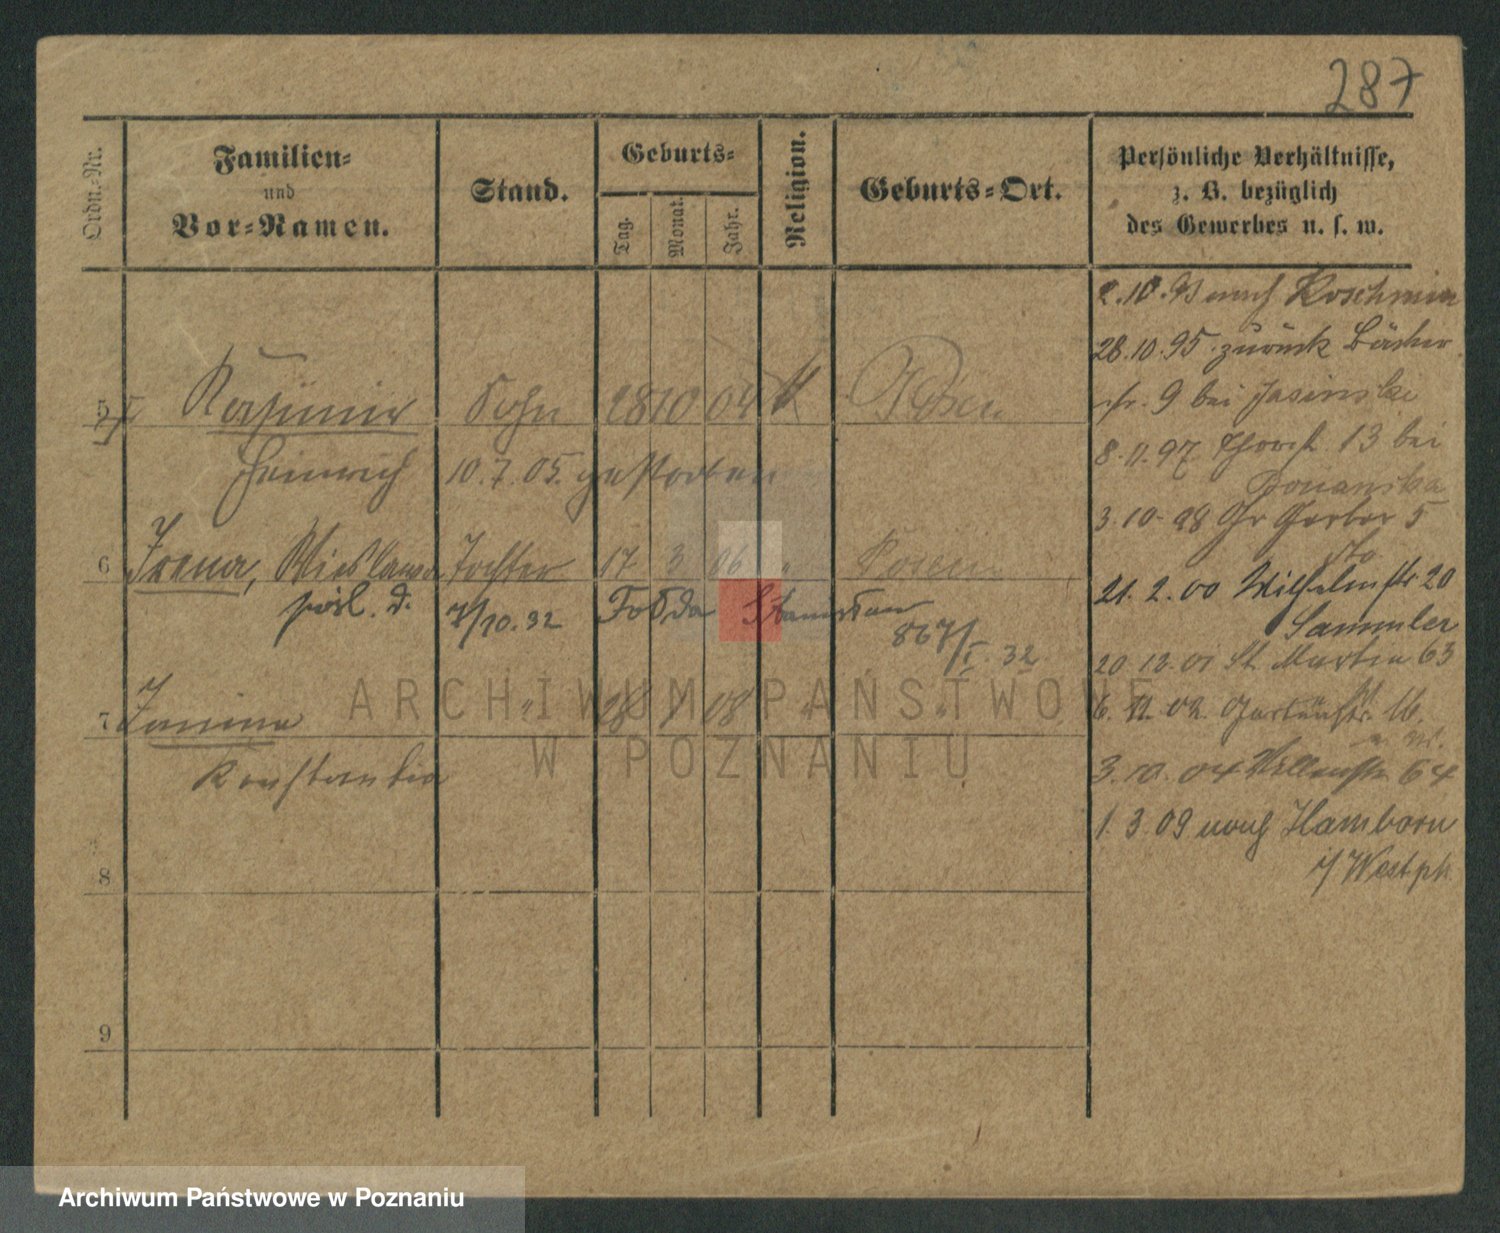 287
Ordn.-Nr.
Familien-
und
Vor-Namen.
Stand.
Geburts-
Tag.
Monat.
Jahr.
Religion.
Geburts-Ort.
Persönliche Verhältnisse,
z. B. bezüglich
des Gewerbes u. s. w.
5 Kasimir Sohn 28 10 04 Posen
Heinrich 10.7.05. gestorben
6 Irena, Wieslawa Tochter 17 3 06 " Posen
pośl. d. 7/10.32 Stanisław
867/I. 32
7 Janina " 18 08 " "
Konstantia
8
9
2.10. nach Koschmin
28.10.95. zurück Bäcker
9 bei Jasinski
8.11.97 13 bei
3.10.98 Gr Gerber 5
21.2.00 Wilhelmstr 20
Sammler
20.12.01 St. Martin 63
6. 11. 02. Gartenstr. 16.
3.10.04 64
1.3.09 nach Hamborn
i/Westph.
ARCHIWUM PAŃSTWOWE
W POZNANIU
Archiwum Państwowe w Poznaniu